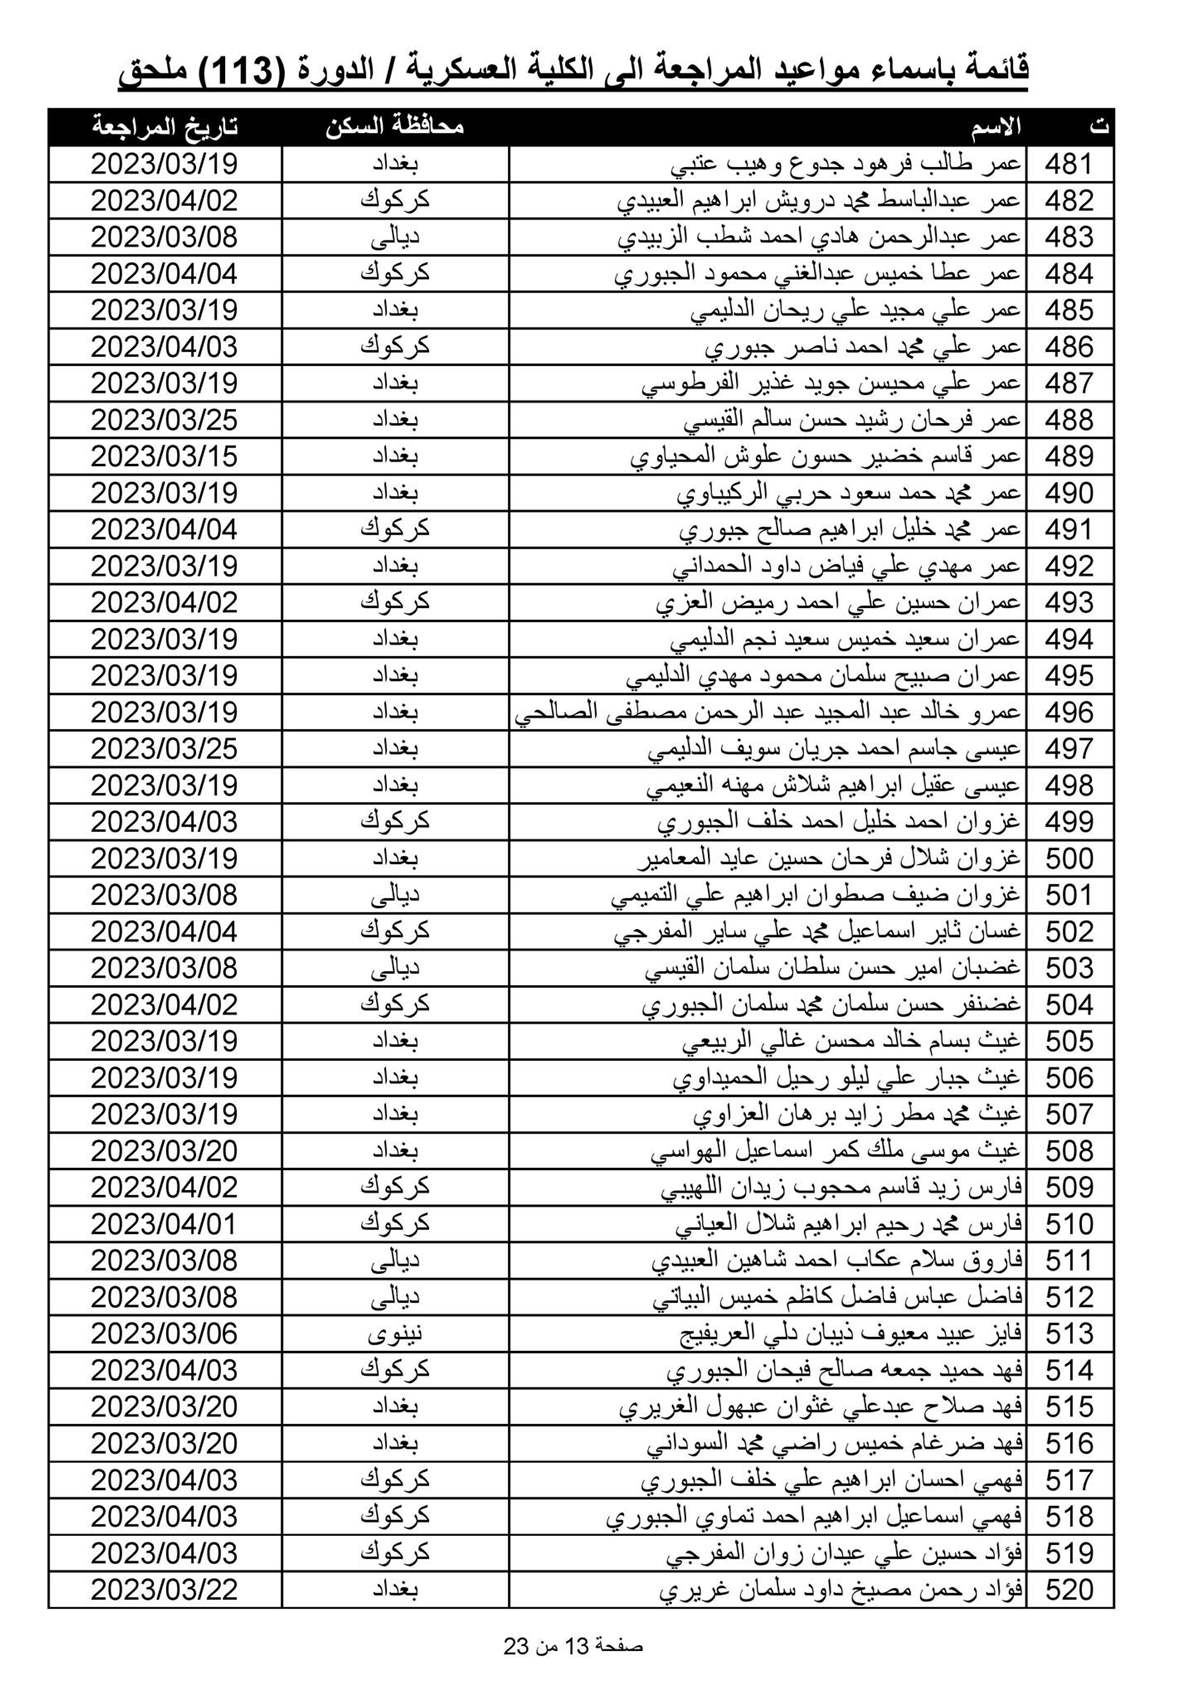 قائمة باسماء مواعيد المراجعة الى الكلية العسكرية / الدورة (113) ملحق
ت الاسم محافظة السكن تاريخ المراجعة
481 عمر طالب فرهود جدوع وهيب عتبي بغداد 2023/03/19
482 عمر عبدالباسط محمد درويش ابراهيم العبيدي كركوك 2023/04/02
483 عمر عبدالرحمن هادي احمد شطب الزبيدي ديالى 2023/03/08
484 عمر عطا خميس عبدالغني محمود الجبوري كركوك 2023/04/04
485 عمر علي مجيد علي ريحان الدليمي بغداد 2023/03/19
486 عمر علي محمد احمد ناصر جبوري كركوك 2023/04/03
487 عمر علي محيسن جويد غذير الفرطوسي بغداد 2023/03/19
488 عمر فرحان رشيد حسن سالم القيسي بغداد 2023/03/25
489 عمر قاسم خضير حسون علوش المحياوي بغداد 2023/03/15
490 عمر محمد حمد سعود حربي الركيباوي بغداد 2023/03/19
491 عمر محمد خليل ابراهيم صالح جبوري كركوك 2023/04/04
492 عمر مهدي علي فياض داود الحمداني بغداد 2023/03/19
493 عمران حسين علي احمد رميض العزي كركوك 2023/04/02
494 عمران سعيد خميس سعيد نجم الدليمي بغداد 2023/03/19
495 عمران صبيح سلمان محمود مهدي الدليمي بغداد 2023/03/19
496 عمرو خالد عبد المجيد عبد الرحمن مصطفى الصالحي بغداد 2023/03/19
497 عيسى جاسم احمد جريان سويف الدليمي بغداد 2023/03/25
498 عيسى عقيل ابراهيم شلاش مهنه النعيمي بغداد 2023/03/19
499 غزوان احمد خليل احمد خلف الجبوري كركوك 2023/04/03
500 غزوان شلال فرحان حسين عايد المعامير بغداد 2023/03/19
501 غزوان ضيف صطوان ابراهيم علي التميمي ديالى 2023/03/08
502 غسان ثاير اسماعيل محمد علي ساير المفرجي كركوك 2023/04/04
503 غضبان امير حسن سلطان سلمان القيسي ديالى 2023/03/08
504 غضنفر حسن سلمان محمد سلمان الجبوري كركوك 2023/04/02
505 غيث بسام خالد محسن غالي الربيعي بغداد 2023/03/19
506 غيث جبار علي ليلو رحيل الحميداوي بغداد 2023/03/19
507 غيث محمد مطر زايد برهان العزاوي بغداد 2023/03/19
508 غيث موسى ملك كمر اسماعيل الهواسي بغداد 2023/03/20
509 فارس زيد قاسم محجوب زيدان اللهيبي كركوك 2023/04/02
510 فارس محمد رحيم ابراهيم شلال العياني كركوك 2023/04/01
511 فاروق سلام عكاب احمد شاهين العبيدي ديالى 2023/03/08
512 فاضل عباس فاضل كاظم خميس البياتي ديالى 2023/03/08
513 فايز عبيد معيوف ذيبان دلي العريفيج نينوى 2023/03/06
514 فهد حميد جمعه صالح فيحان الجبوري كركوك 2023/04/03
515 فهد صلاح عبدعلي غثوان عبهول الغريري بغداد 2023/03/20
516 فهد ضرغام خميس راضي محمد السوداني بغداد 2023/03/20
517 فهمي احسان ابراهيم علي خلف الجبوري كركوك 2023/04/03
518 فهمي اسماعيل ابراهيم احمد تماوي الجبوري كركوك 2023/04/03
519 فؤاد حسين علي عيدان زوان المفرجي كركوك 2023/04/03
520 فؤاد رحمن مصيخ داود سلمان غريري بغداد 2023/03/22
صفحة 13 من 23